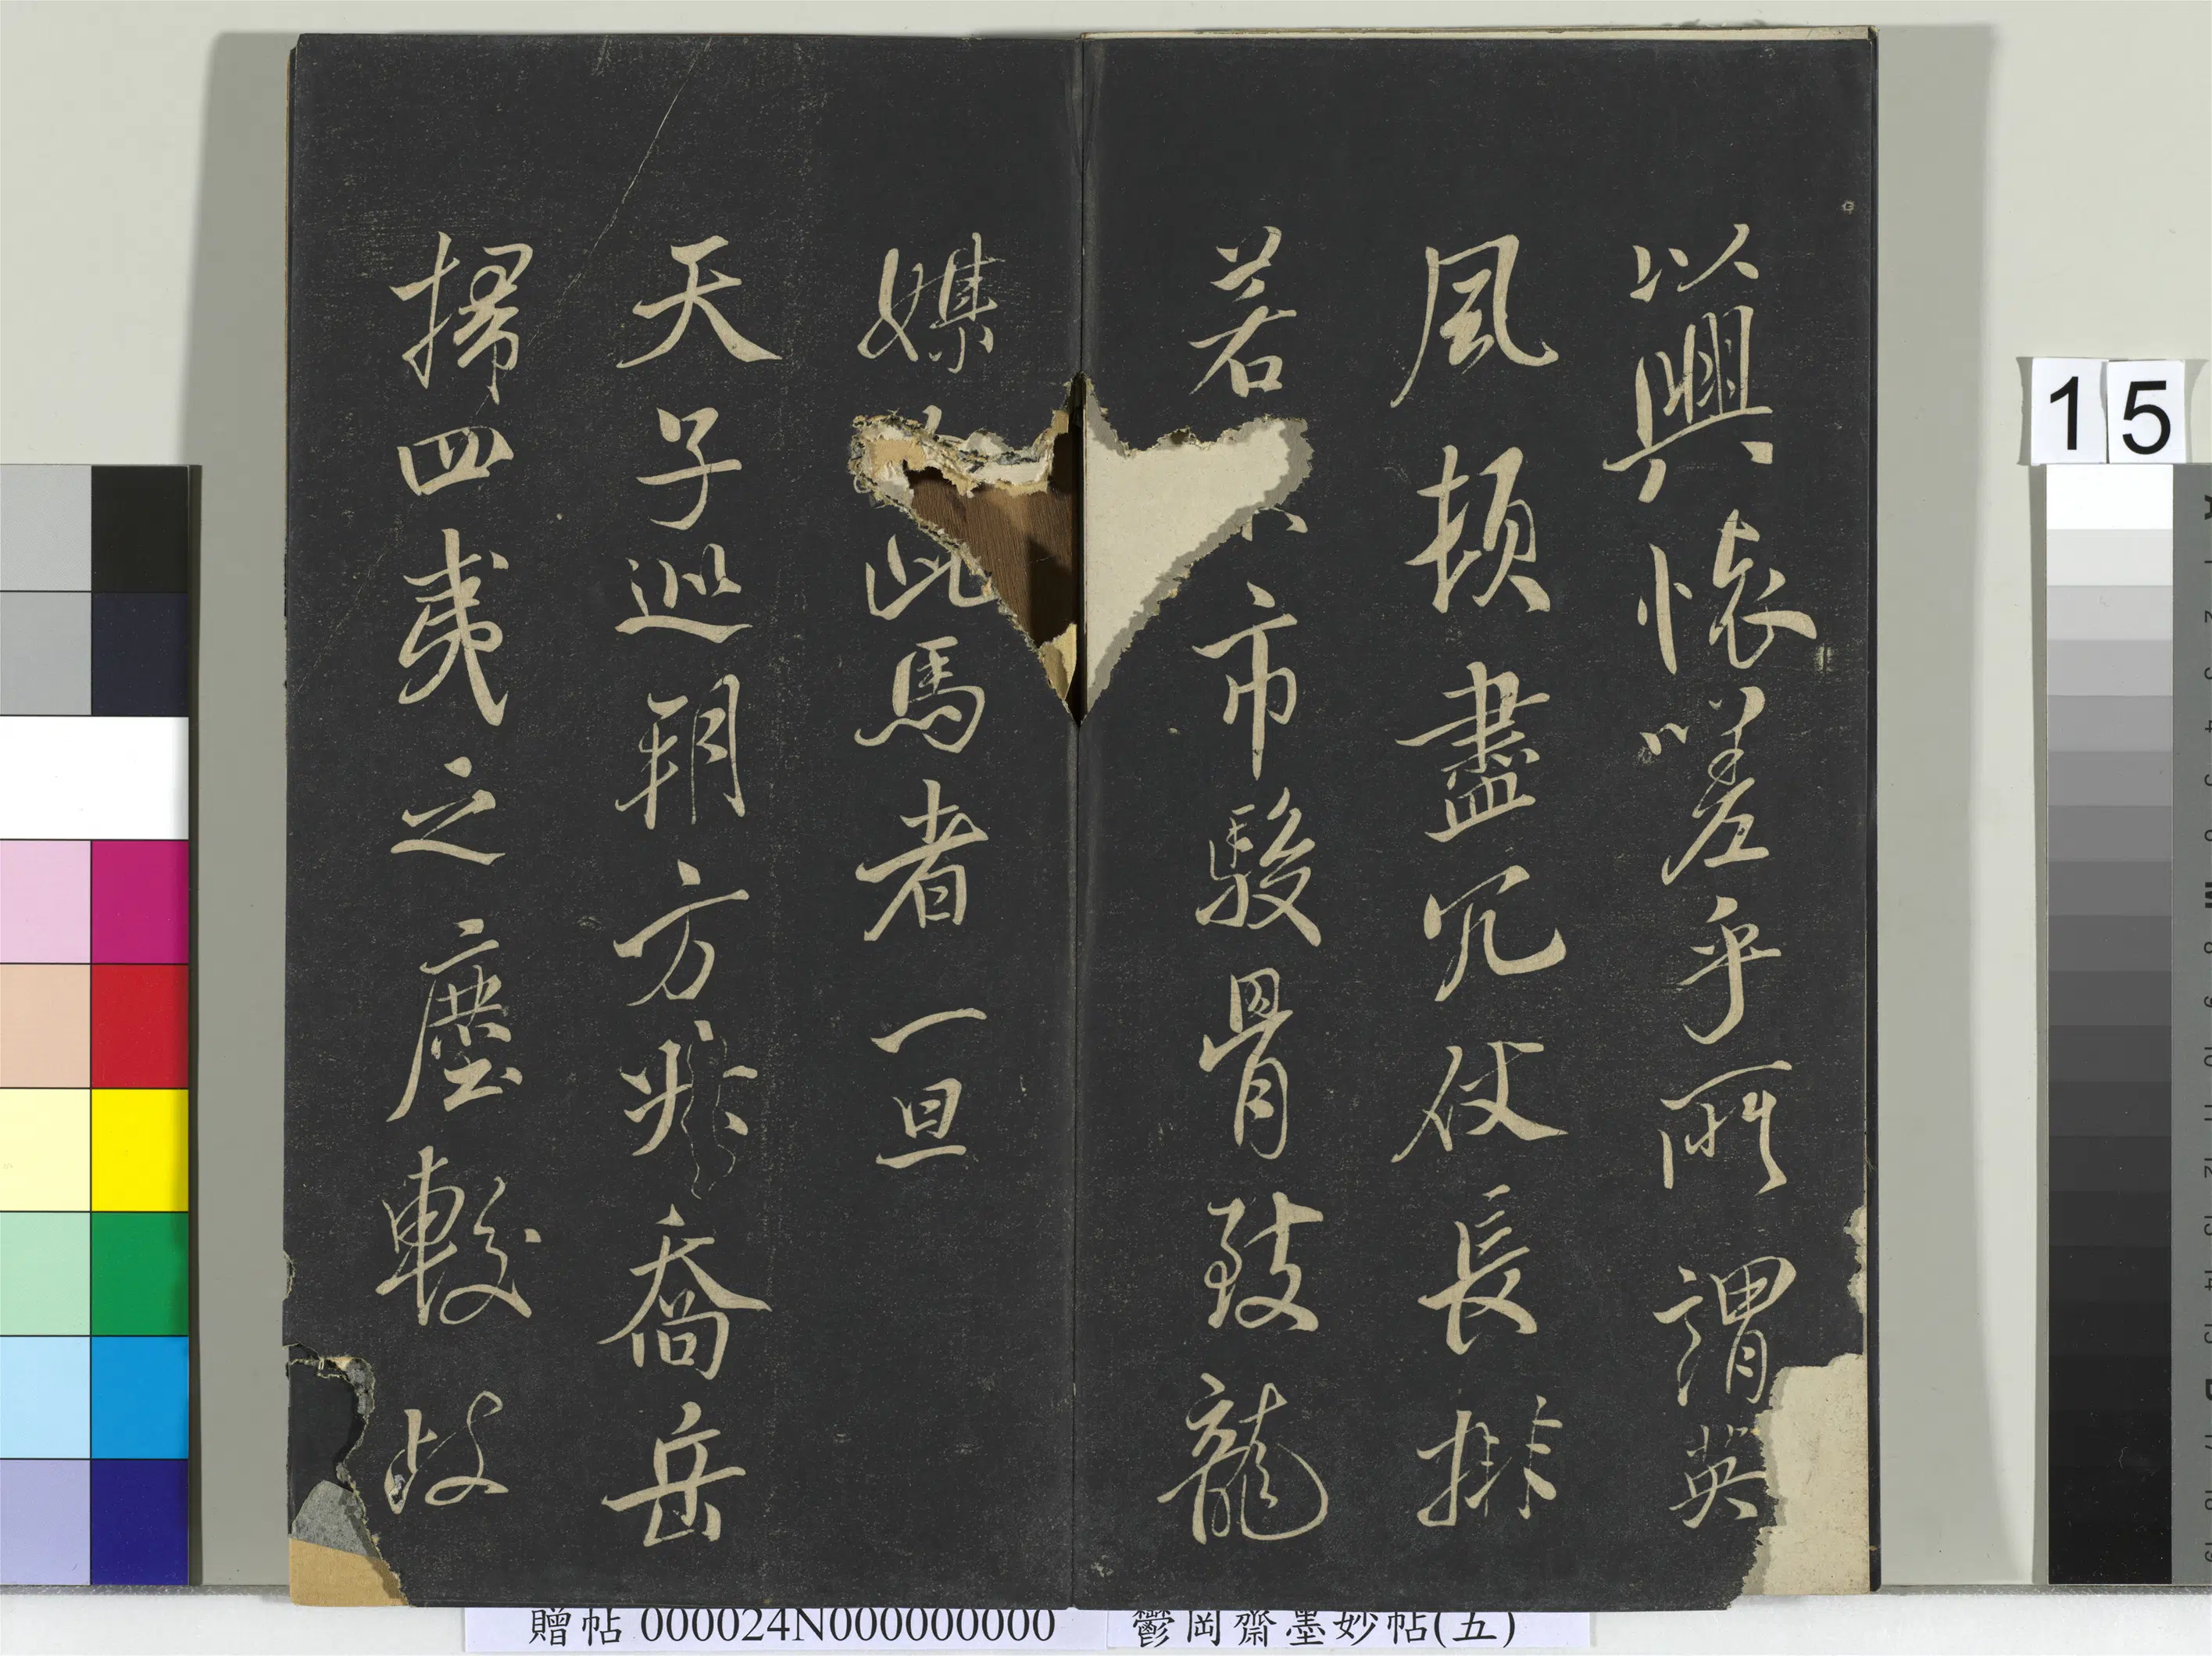 以興懷嗟乎所謂英
風頓盡冗仗長排
若市駿骨致龍
媒此馬者一旦
天子巡朔方喬岳
掃四夷之塵較岐
15
贈帖 000024N000000000
鬱岡齋墨妙帖(五)